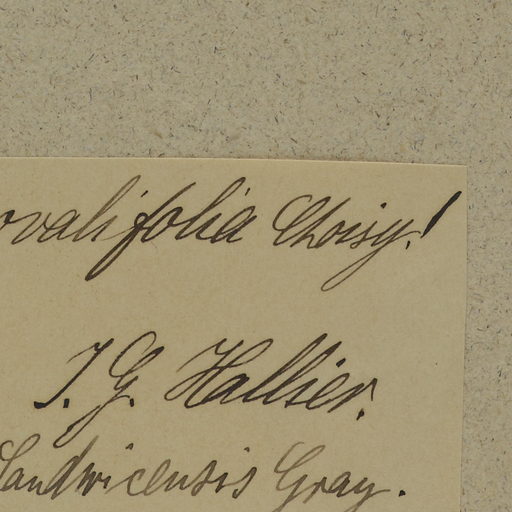 ovalifolia Choisy!
J. G. Hallier.
Sandwicensis Gray.